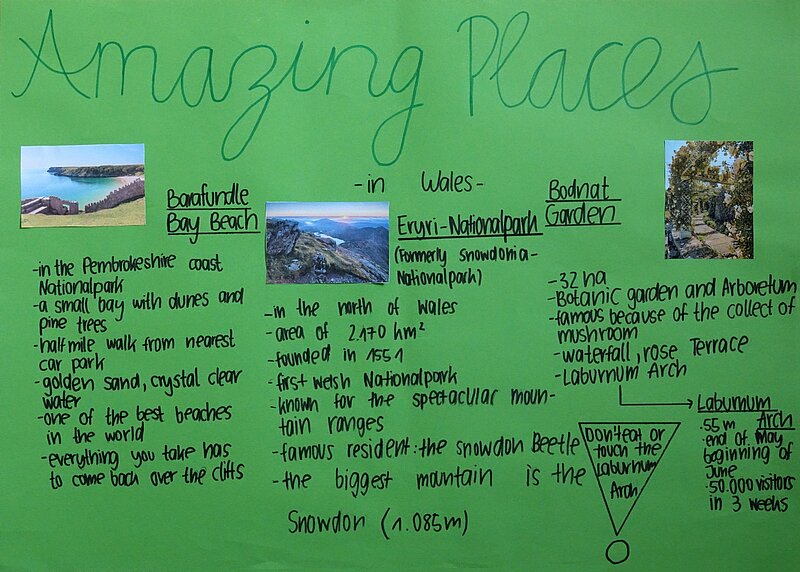 Amazing Places
-in Wales-
Barafundle
Bay Beach
-in the Pembrokeshire coast
Nationalpark
-a small bay with dunes and
pine trees
-half mile walk from nearest
car park
-golden sand, crystal clear
water
-one of the best beaches
in the world
-everything you take has
to come back over the cliffs
Eryri-Nationalpark
(Formerly Snowdonia-
Nationalpark)
-in the north of Wales
-area of 2.170 km²
-founded in 1551
-first welsh Nationalpark
-known for the spectacular moun-
tain ranges
-famous resident: the snowdon Beetle
-the biggest mountain is the
Snowdon (1.085m)
Bodnat
Garden
-32 ha
-Botanic garden and Arboretum
-famous because of the collect of
mushroom
-waterfall, rose Terrace
-Laburnum Arch
Laburnum
Arch
·55 m
·end of May
beginning of
June
·50.000 visitors
in 3 weeks
Don't eat or
touch the
Laburnum
Arch